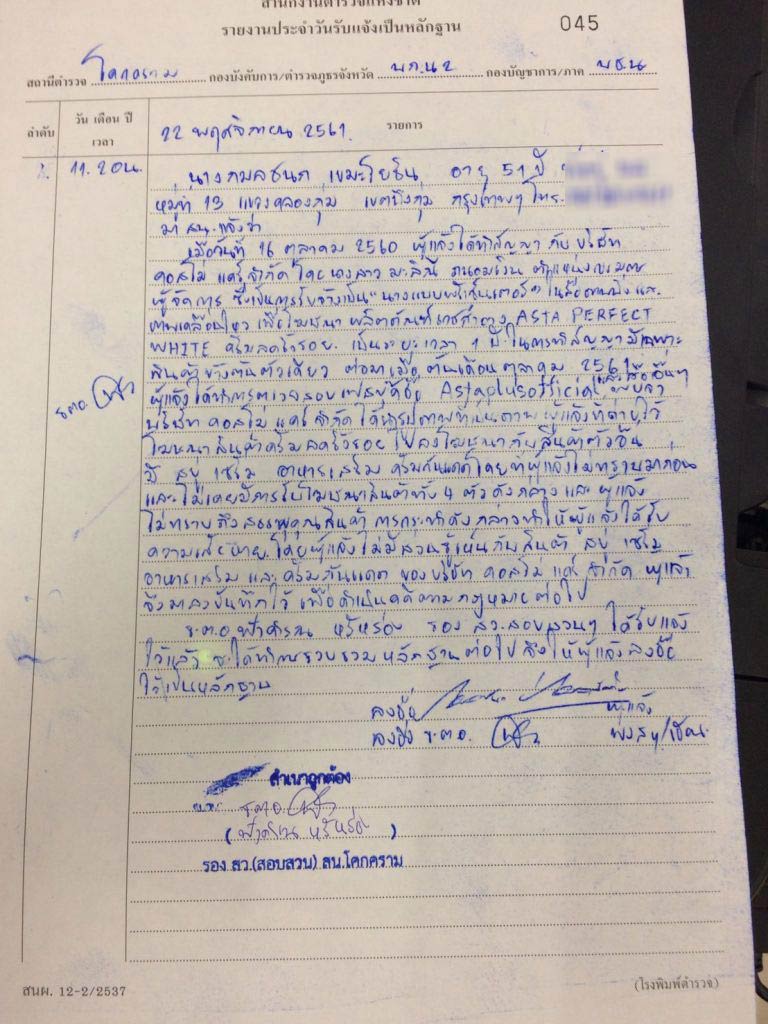 สำนักงานตำรวจแห่งชาติ
รายงานประจำวันรับแจ้งเป็นหลักฐาน
045
สถานีตำรวจ โคกคราม กองบังคับการ/ตำรวจภูธรจังหวัด บก.น2 กองบัญชาการ/ภาค บช.น
ลำดับ วัน เดือน ปี เวลา รายการ
22 พฤศจิกายน 2561
11.20น. นางกมลชนก เขมะโยธิน อายุ 51 ปี
หมู่ที่ 13 แขวงคลองกุ่ม เขตบึงกุ่ม กรุงเทพฯ โทร.
มา สน. แจ้งว่า
เมื่อวันที่ 16 ตุลาคม 2560 ผู้แจ้งได้ทำสัญญา กับ บริษัท
คอสโม่ แคร์ จำกัด โดย นางสาว มะลิณี ตำแหน่ง
ผู้จัดการ ซึ่งเป็นการรับจ้างเป็น "นางแบบพรีเซ็นเตอร์" ในสื่อภาพนิ่ง และ
ภาพเคลื่อนไหว เพื่อโฆษณา ผลิตภัณฑ์ ASTA PERFECT
WHITE ครีมลดริ้วรอย เป็นระยะเวลา 1 ปี ในการทำสัญญา มีเฉพาะ
สินค้าข้างต้นตัวเดียว ต่อมาเมื่อ ต้นเดือนตุลาคม 2561
ผู้แจ้งได้ทำการตรวจสอบ เฟสบุ๊คชื่อ Astaplusofficial และชื่ออื่นๆ พบว่า
ร.ต.อ.
บริษัท คอสโม่ แคร์ จำกัด ได้นำรูปภาพที่เป็นภาพ ผู้แจ้งที่ถ่ายไว้
โฆษณาสินค้าครีมลดริ้วรอย ไปลงโฆษณา กับสินค้าตัวอื่น
มี สบู่ เซรั่ม อาหารเสริม ครีมกันแดด โดยที่ผู้แจ้งไม่ทราบมาก่อน
และ ไม่เคยมีการรับโฆษณาสินค้าทั้ง 4 ตัว ดังกล่าว และ ผู้แจ้ง
ไม่ทราบถึงสรรพคุณสินค้า การกระทำดังกล่าวทำให้ผู้แจ้งได้รับ
ความเสียหาย โดยผู้แจ้งไม่มีส่วนรู้เห็นกับสินค้า สบู่ เซรั่ม
อาหารเสริม และ ครีมกันแดด ของบริษัท คอสโม่ แคร์ จำกัด ผู้แจ้ง
จึงมาลงบันทึกไว้ เพื่อดำเนินคดีตามกฎหมายต่อไป
ร.ต.อ. หรีหร่อง รอง สว.สอบสวนฯ ได้รับแจ้ง
ไว้แล้ว จะได้ทำการรวบรวมหลักฐานต่อไป จึงให้ผู้แจ้งลงชื่อ
ไว้เป็นหลักฐาน
ลงชื่อ ผู้แจ้ง
ลงชื่อ ร.ต.อ. พงส/เขียน
สำเนาถูกต้อง
ร.ต.อ.
( หรีหร่อง )
รอง สว.(สอบสวน) สน.โคกคราม
สนผ. 12-2/2537
(โรงพิมพ์ตำรวจ)